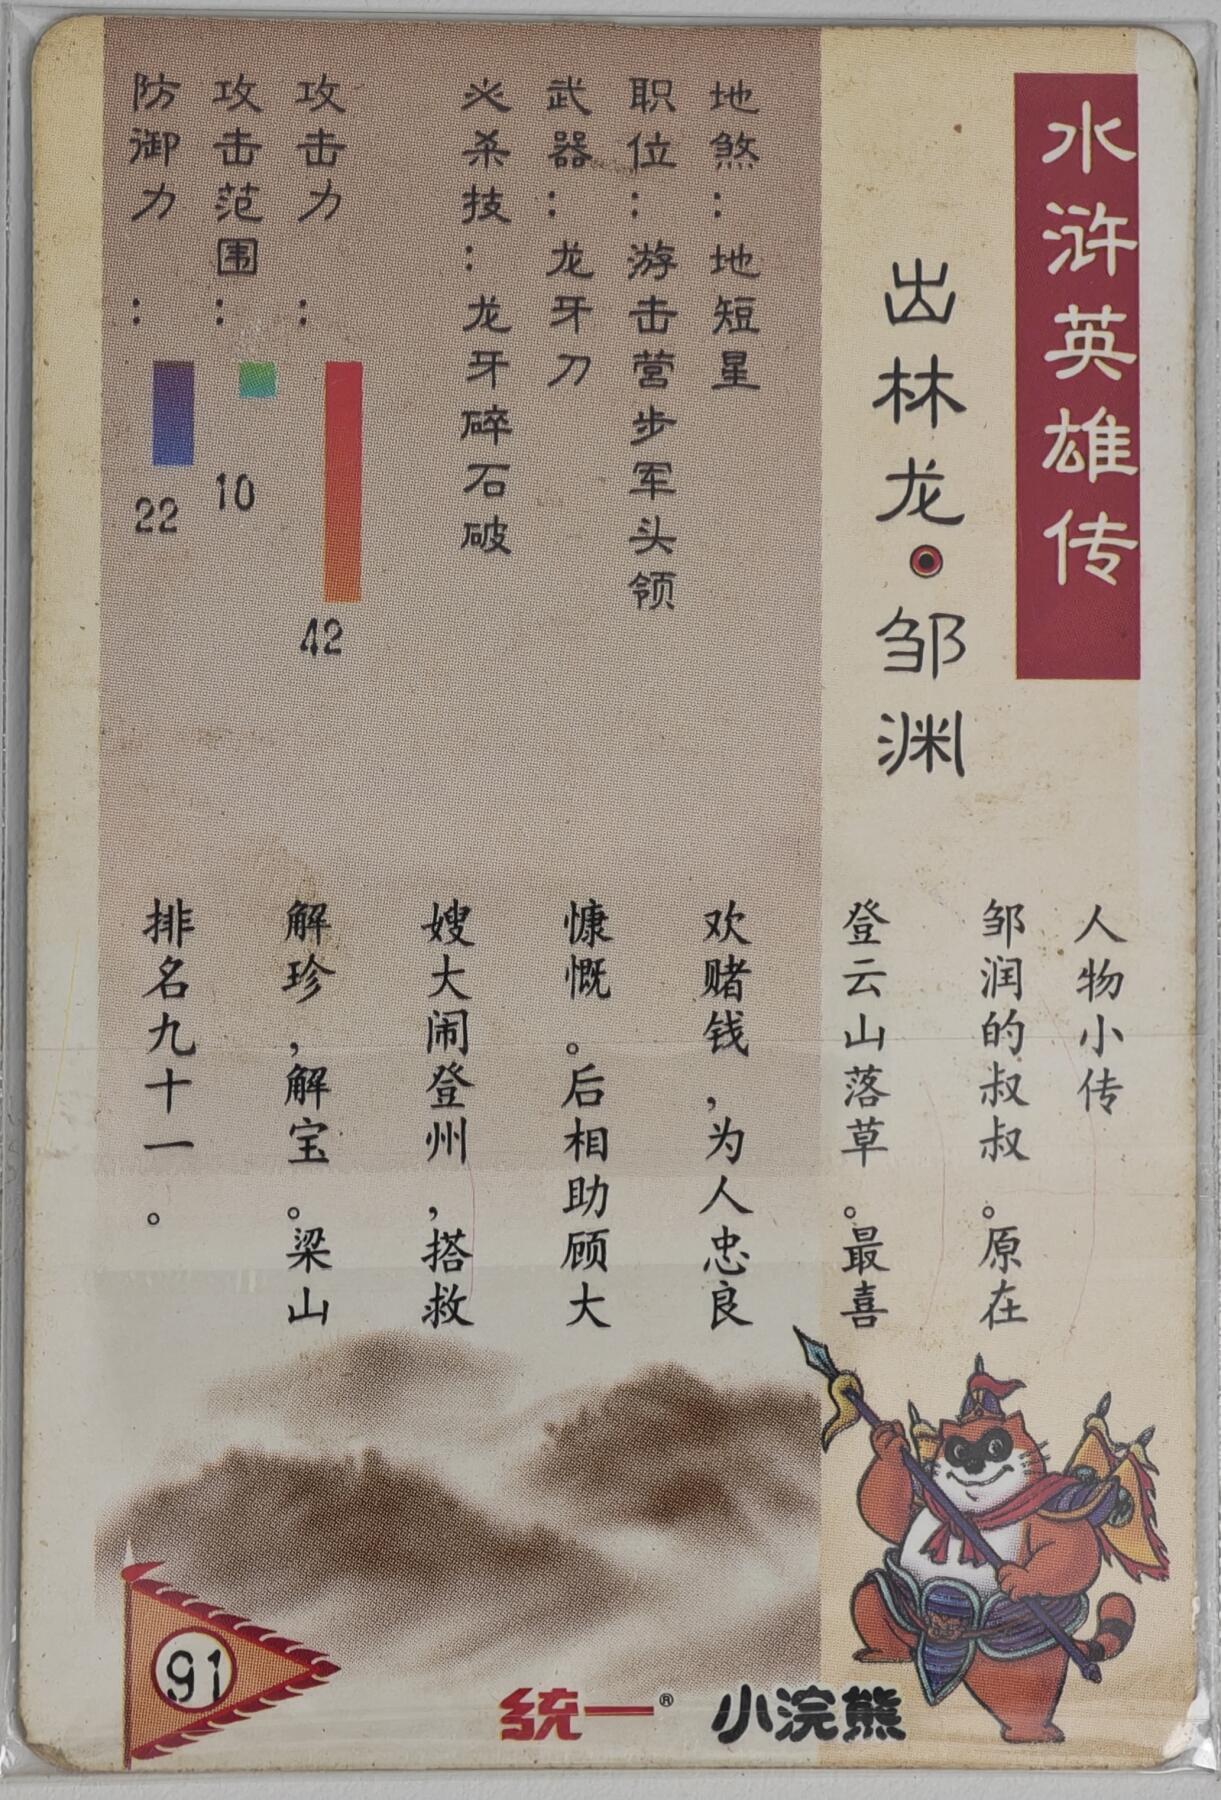 水浒英雄传
出林龙·邹渊
地煞：地短星
职位：游击营步军头领
武器：龙牙刀
必杀技：龙牙碎石破
攻击力：42
攻击范围：10
防御力：22
人物小传
邹润的叔叔。原在
登云山落草。最喜
欢赌钱，为人忠良
慷慨。后相助顾大
嫂大闹登州，搭救
解珍，解宝。梁山
排名九十一。
91
统一® 小浣熊